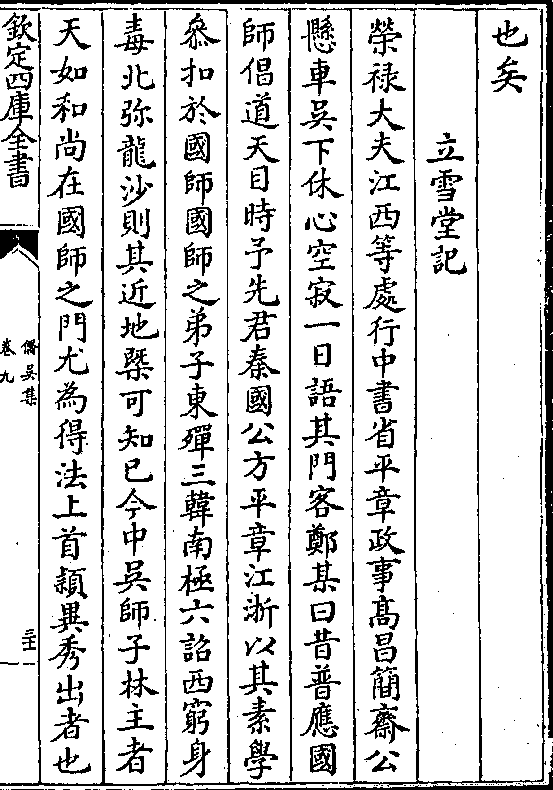 也矣
立雪堂記
榮禄大夫江西等處行中書省平章政事髙昌簡齋公
懸車吳下休心空寂一日語其門客鄭某曰昔普應國
師倡道天目時予先君秦國公方平章江浙以其素學
叅扣於國師國師之弟子東殫三韓南極六詔西窮身
毒北弥龍沙則其近地槩可知已今中吳師子林主者
天如和尚在國師之門尤為得法上首頴異秀出者也
欽定四庫全書
僑吳集
卷九
二十